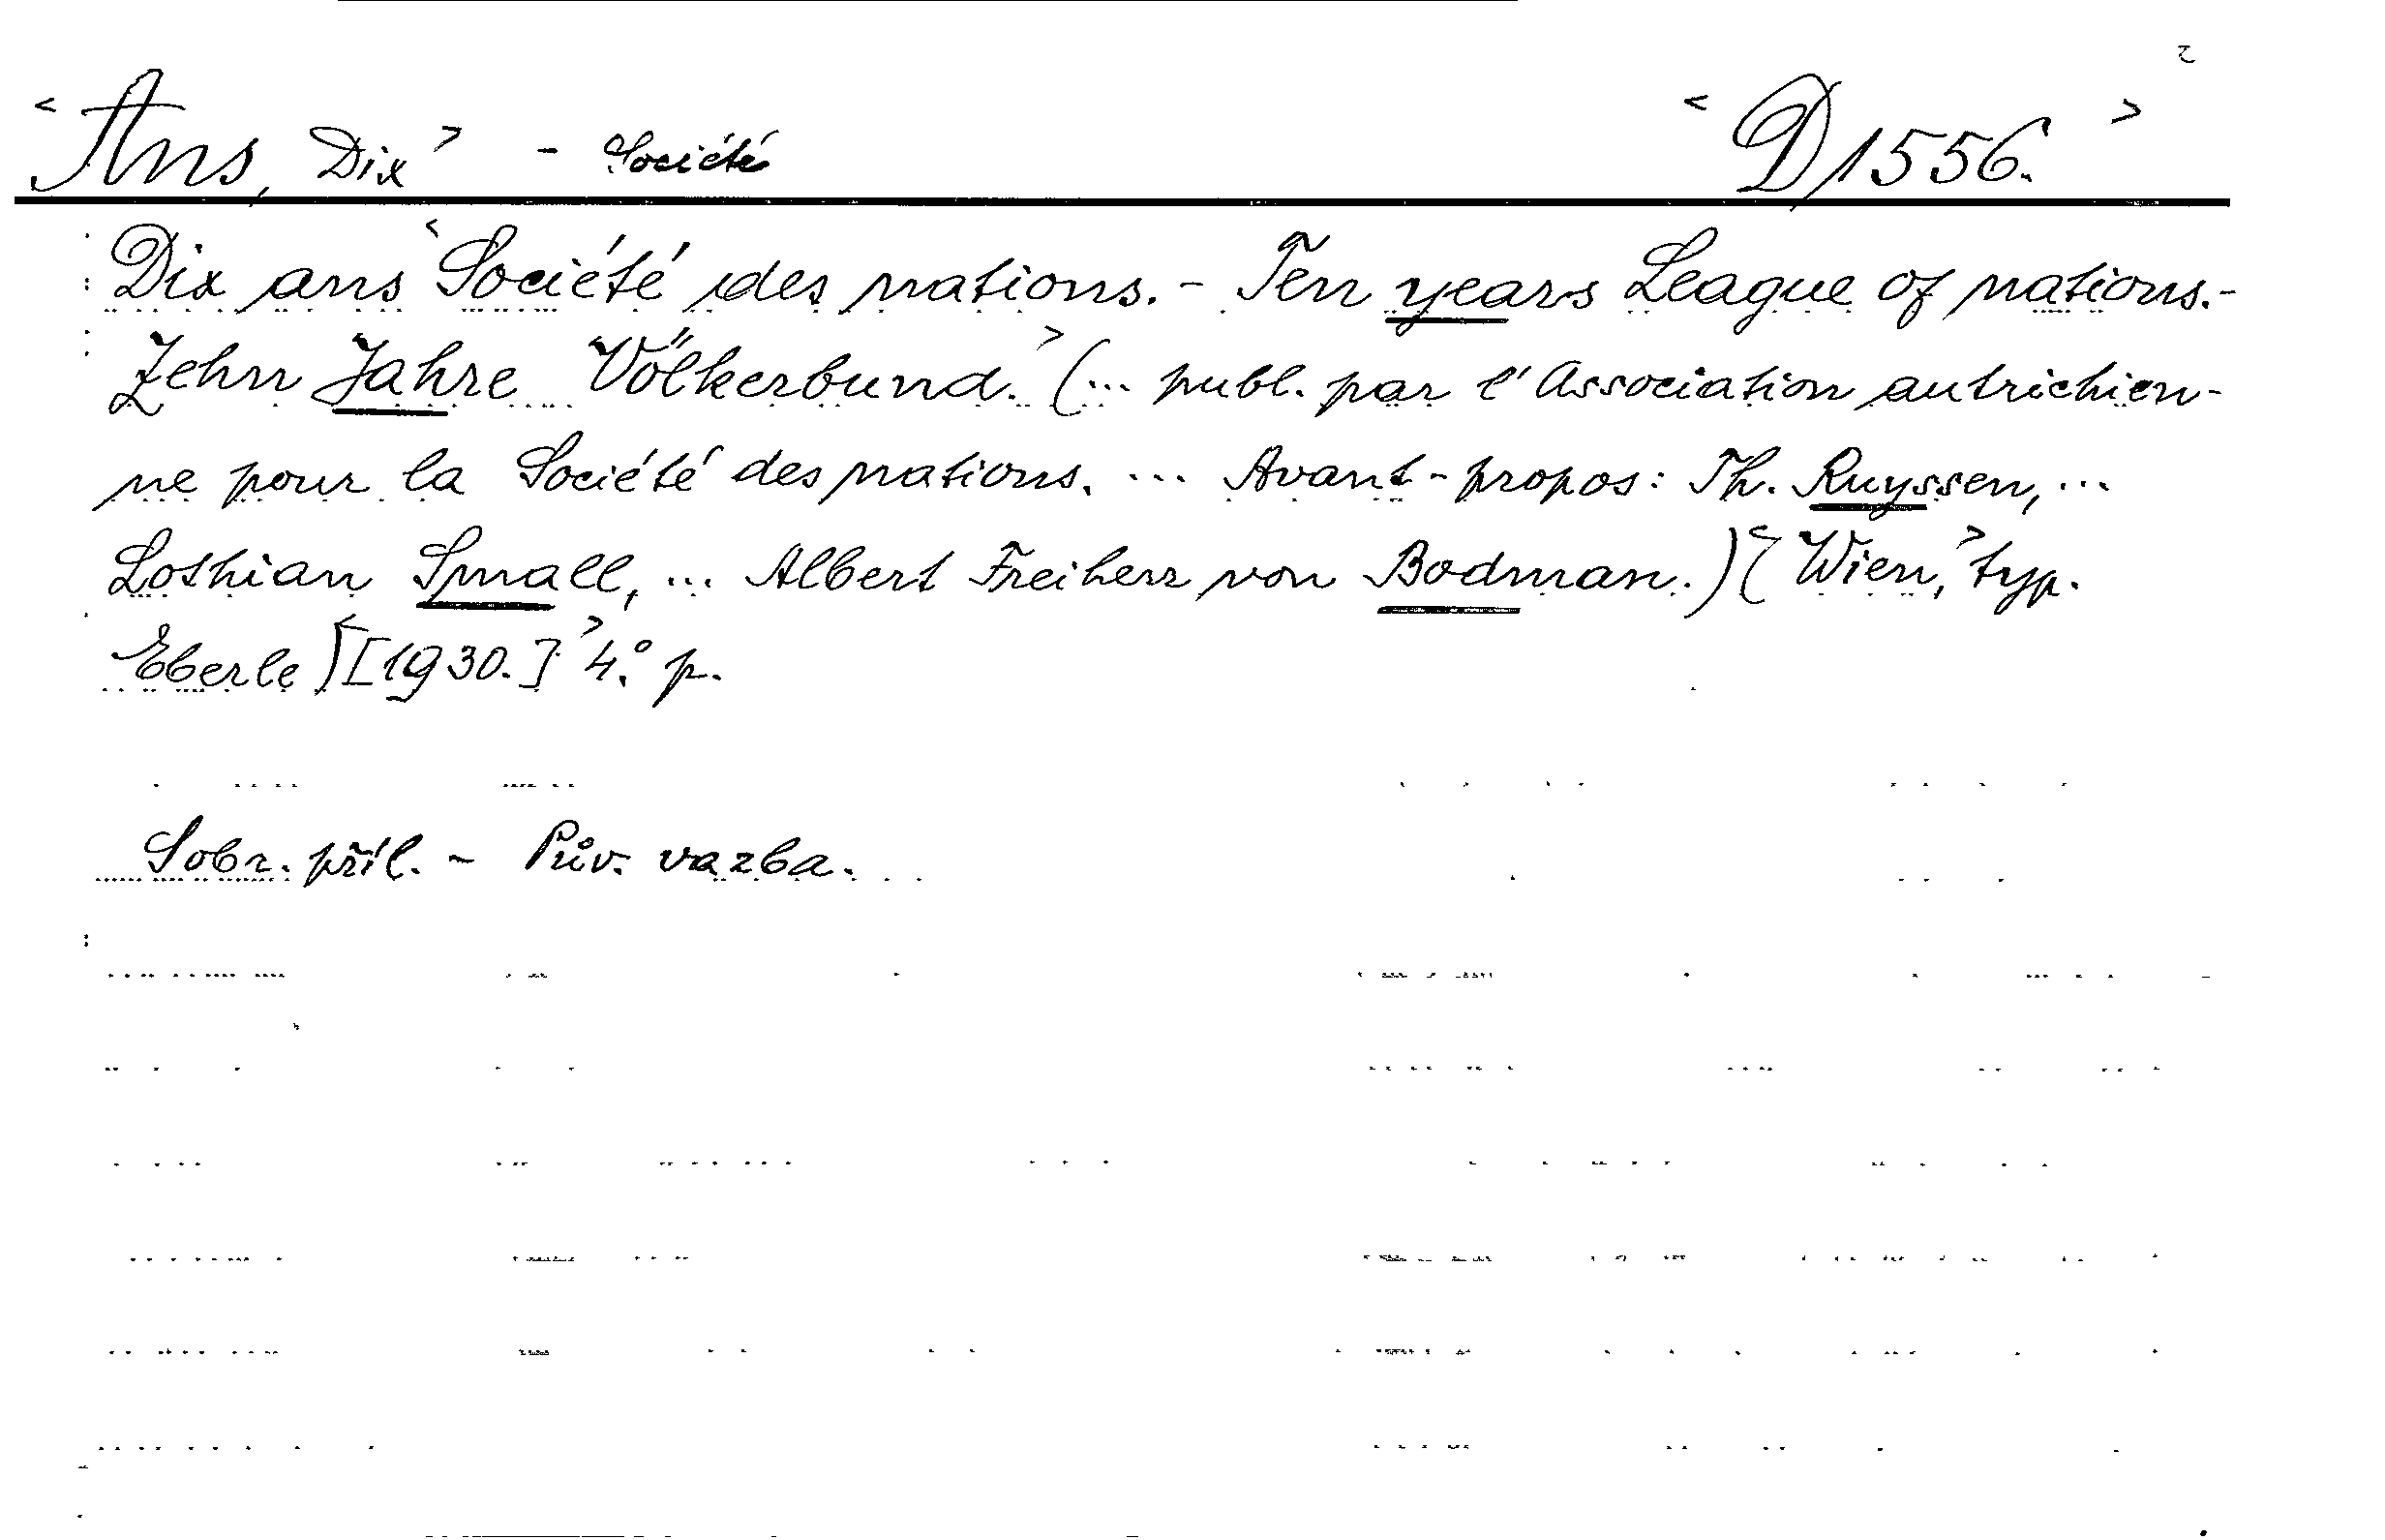 <Ans, Dix> - Société <D 1556.>
Dix ans <Société des nations. - Ten years League of nations. -
Zehn Jahre Völkerbund.> (... publ. par l'Association autrichien-
ne pour la Société des nations. ... Avant-propos: Th. Ruyssen, ...
Lothian Small, ... Albert Freiherr von Bodman.) <(Wien,> typ.
Eberle) <[1930.]> 4.° p.
Sobr. příl. - Pův. vazba.